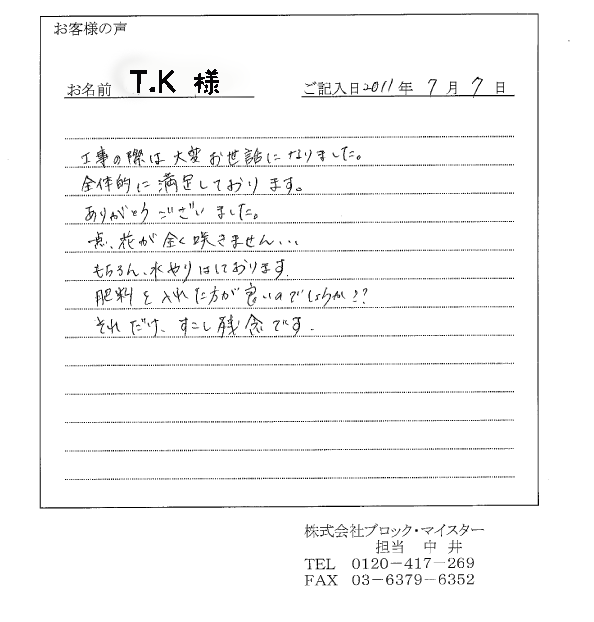 お客様の声
お名前 T.K 様 ご記入日2011年 7月 7日
工事の際は大変お世話になりました。
全体的に満足しております。
ありがとうございました。
一点、花が全く咲きません...
もちろん、水やりはしております。
肥料を入れた方が良いのでしょうか??
それだけ、すこし残念です.
株式会社ブロック・マイスター
担当 中 井
TEL 0120-417-269
FAX 03-6379-6352